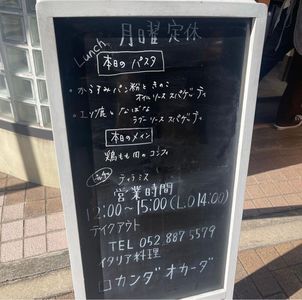 Lunch
月曜定休
本日のパスタ
・からすみパン粉ときのこ
オイルソーススパゲティ
・エゾ鹿となばな
ラグーソース スパゲティ
本日のメイン
・鶏もも肉のコンフィ
ティラミス
営業時間
12:00~15:00(L.O14:00)
テイクアウト
TEL 052.887.5579
イタリア料理
カンダオカーダ